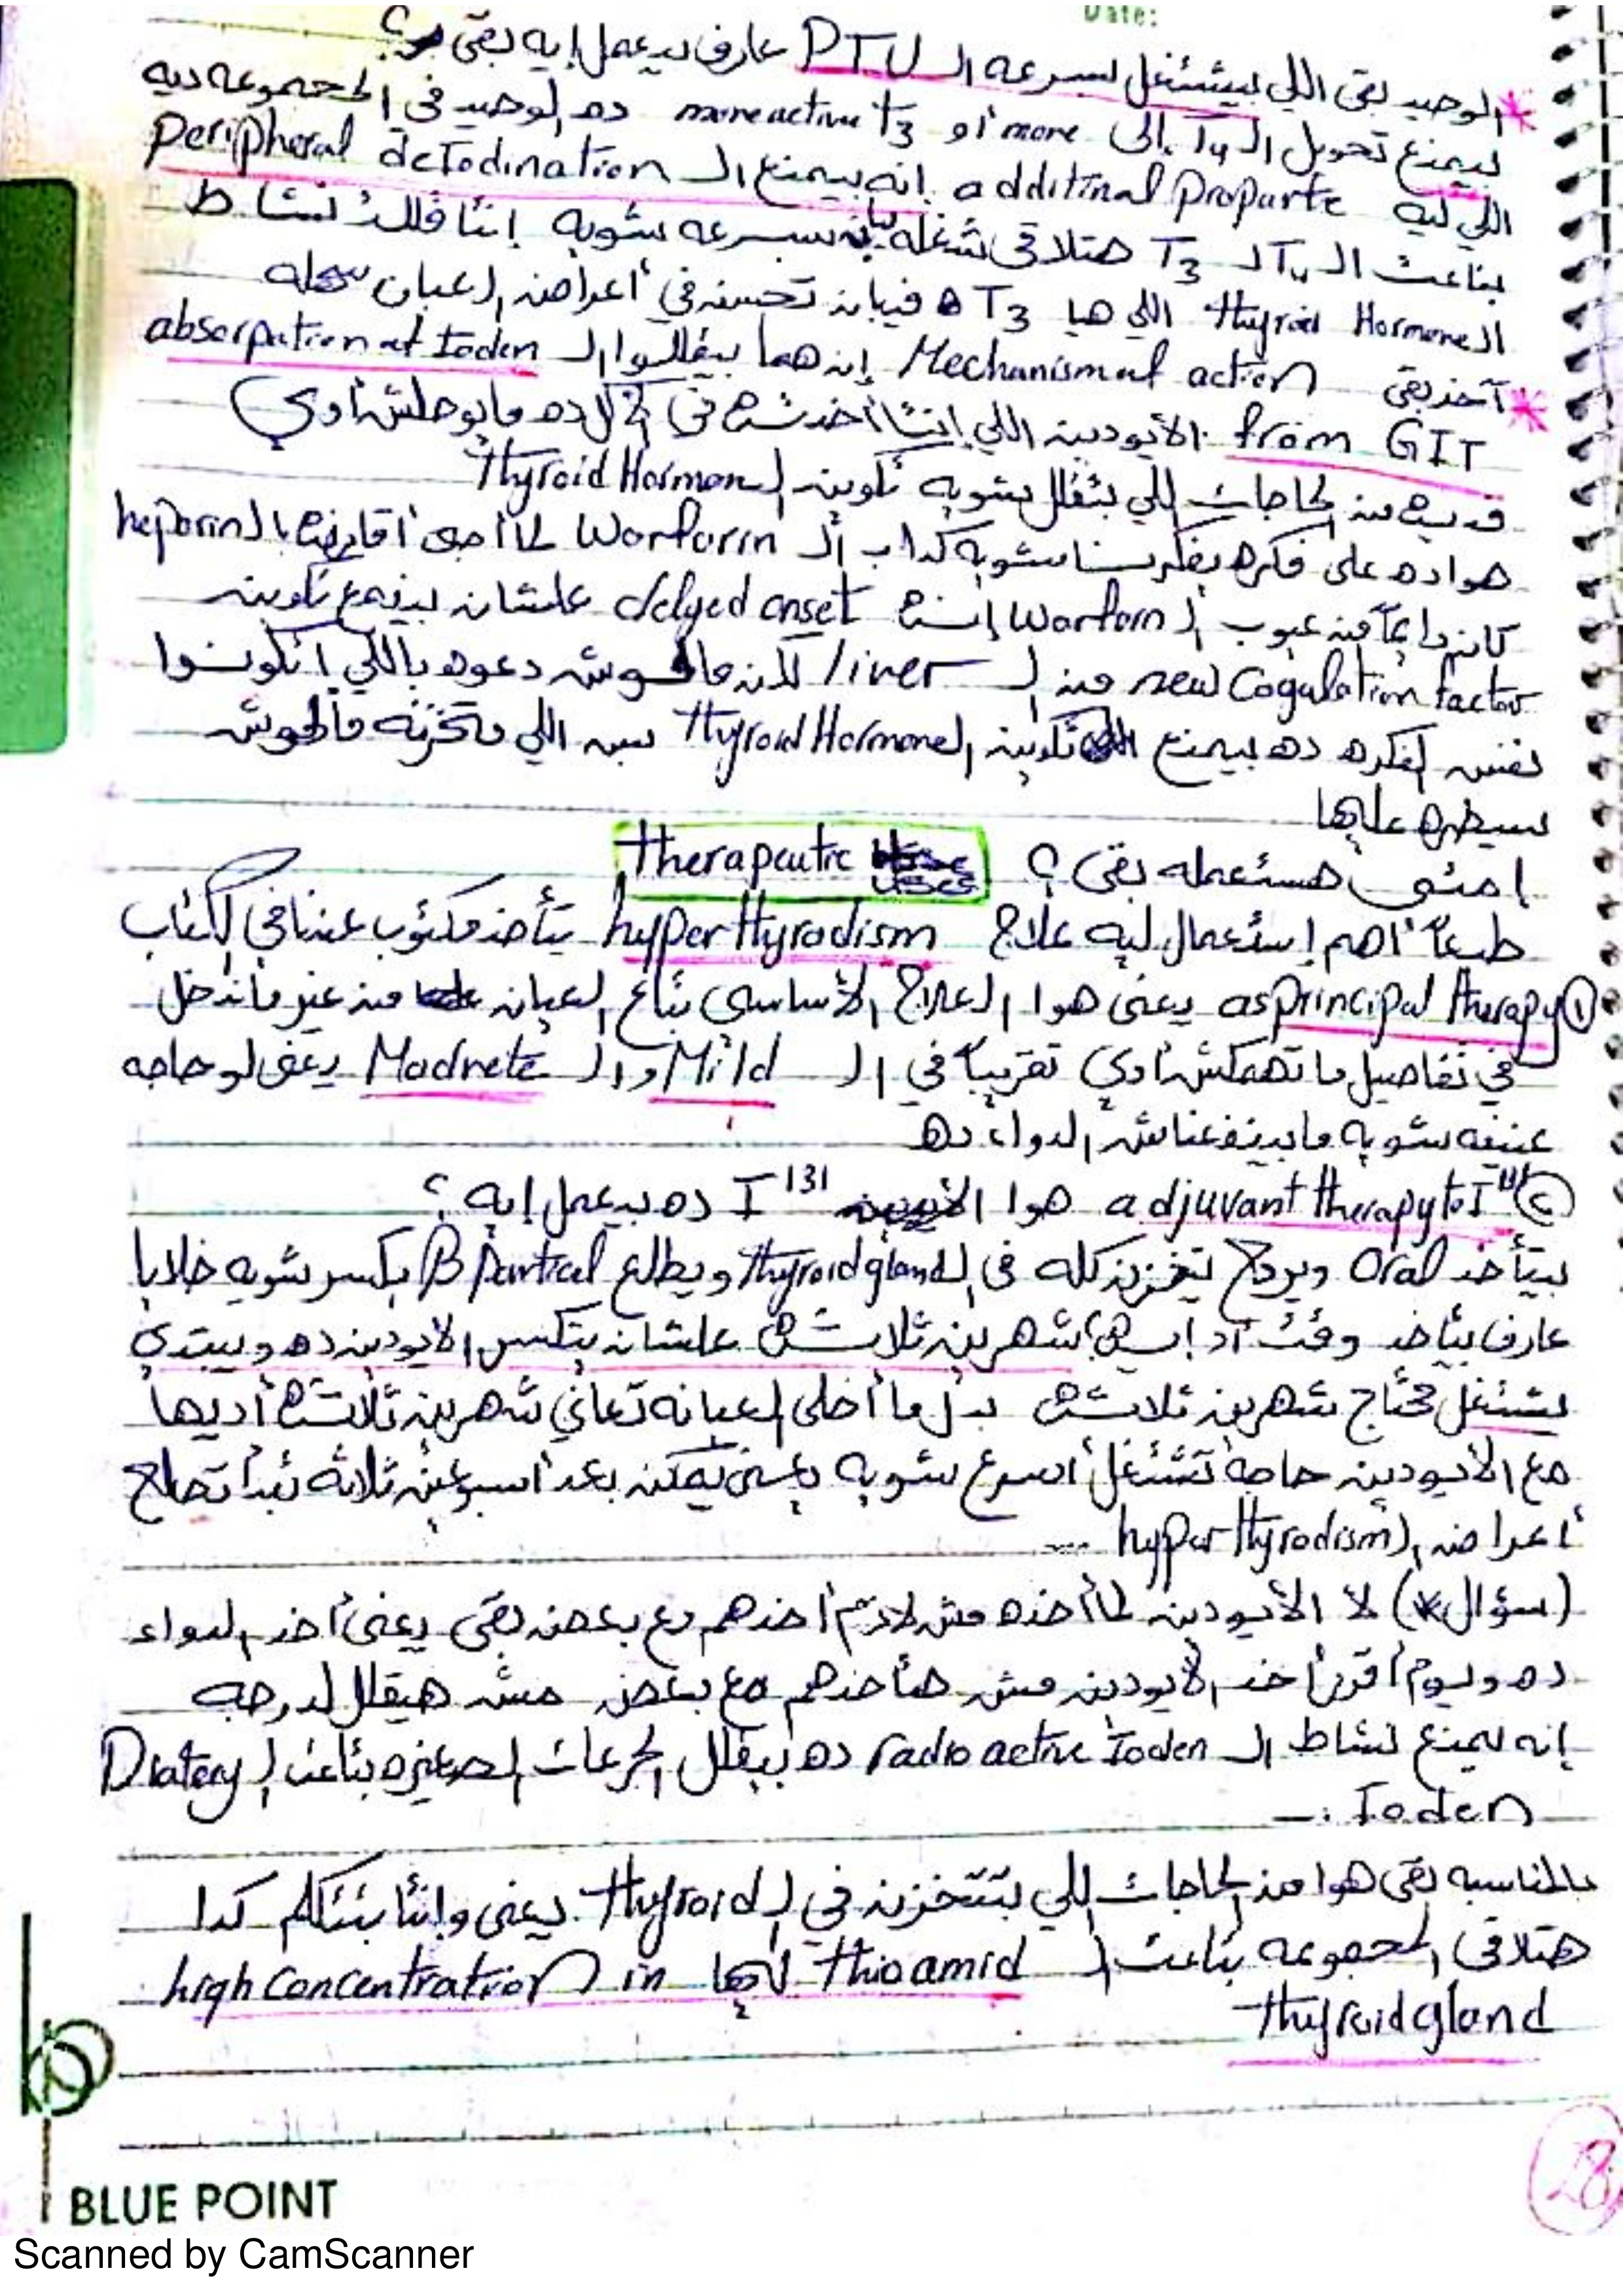 Date:
* الوحيد بقى اللي بيشتغل بسرعه الـ PTU عارف بيعمل إيه بقى ؟
بيمنع تحويل الـ T4 إلى more أو more active T3 ده الوحيد في المجموعه ديه
اللي ليه additinal Proparte إنه بيمنع الـ Peripheral deIodination
بتاعت الـ T4 لـ T3 هتلاقى شغله بسرعه شويه إنتا قللت نشاط
الـ thyroid Hormone اللي هيا T3 فيبان تحسنه في أعراض العيان
* آخر بقى Mechanism of action إن هما بيقللوا الـ absorpation of Ioden
from GIT الأيودين اللي إنتا أخدته في الأكل ده مابوصلش أوي
من الحاجات اللي بتقلل شويه تكوين الـ thyroid Hormon
هوا ده على فكره بفكرنا شويه كدا بـ الـ Warfarin لما أجى أقارنه بالـ heparin
كان دايماً من عيوب الـ Warfarn إنه delyed onset علشان بيمنع تكوين
new Cogulation factor من الـ liver لكن مالهوش دعوه باللي اتكونوا
نفس الفكره ده بيمنع تكوين الـ Thyroid Hormone بس اللي متخزنه مالهوش
سيطره عليها
إمتى هستعمله بقى ؟ therapeutic
طبعاً أهم إستعمال ليه علاج hyper thyrodism بيتأخد مكتوب عندنا في الكتاب
① as principal therapy يعنى هوا العلاج الأساسى بتاع العيان من غير ماندخل
في تفاصيل ماتهمكش أوي تقريباً في الـ Mild والـ Modrete يعنى لو حاجه
عنيفه شويه مابينفعناش الدواء ده
② adjuvant therapy to I131 هوا I131 ده بيعمل إيه ؟
بيتأخد Oral ويروح يتخزن كله في الـ thyroid gland ويطلع B Partical يكسر شويه خلايا
عارف بياخد وقت أد إيه؟ شهرين ثلاثه علشان يتكسر الأيودين ده ويبتدي
يشتغل محتاج شهرين ثلاثه بدل ما أخلى العيانه تعاني شهرين ثلاثه أديها
مع الأيودين حاجه تشتغل أسرع شويه يعنى يمكن بعد أسبوعين ثلاثه تبدأ تعالج
أعراض الـ hyper thyrodism ...
(سؤال*) لا الأيودين لما أخده مش لازم أخدهم مع بعض بقى يعنى أخد الدواء
ده ويوم أقرر أخد الأيودين مش هأخدهم مع بعض مش هيقلل لدرجه
إنه يمنع نشاط الـ radio active Ioden ده بيقلل الجرعات الصغيره بتاعت الـ Diatery
Ioden
بالمناسبه بقى هوا من الحاجات اللي بتتخزن في الـ thyroid يعنى وإنتا بتتكلم كدا
هتلاقى المجموعه بتاعت الـ thioamid ليها high concentration in
thyroid gland
28
BLUE POINT
Scanned by CamScanner